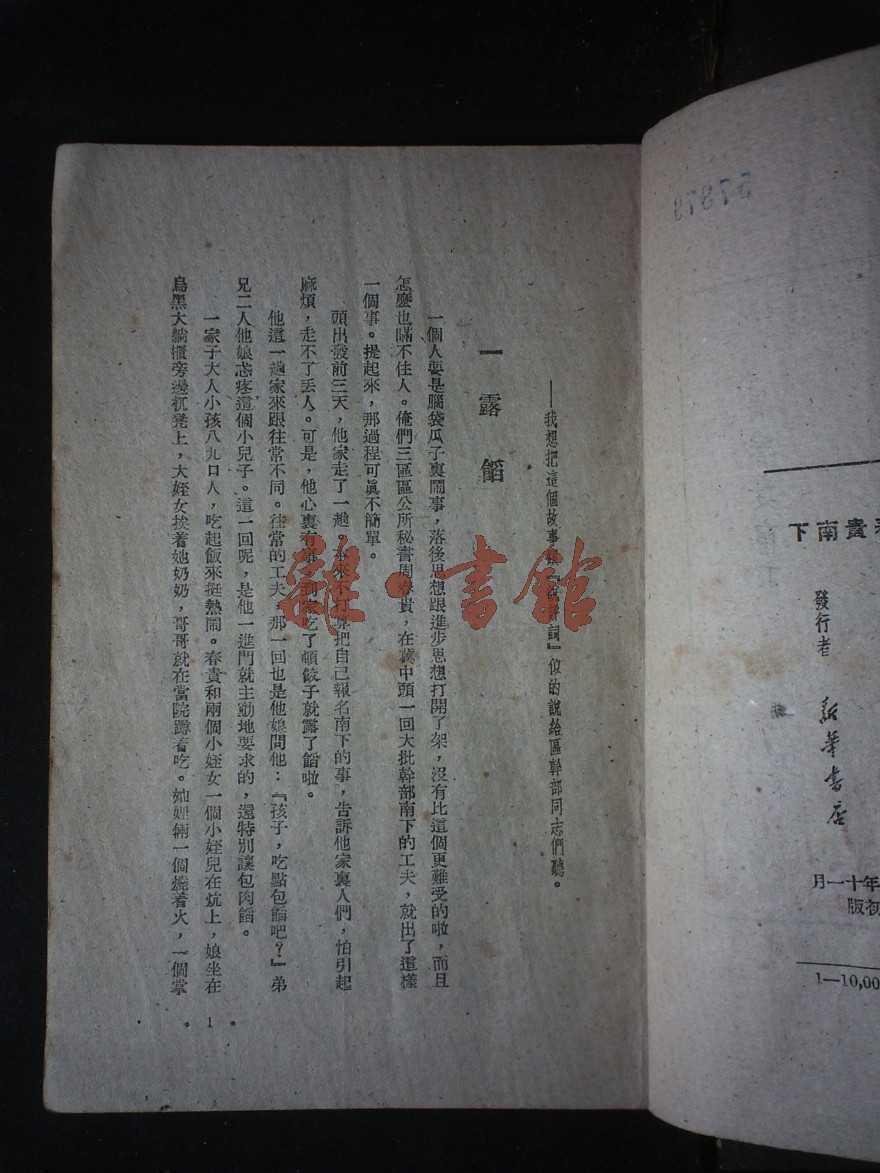 57878
下南貴
發行者
新華書店
月一十年
版初
1—10,00
——我想把這個故事
』似的說給區幹部同志們聽。
一 露餡
一個人要是腦袋瓜子裏鬧事，落後思想跟進步思想打開了架，沒有比這個更難受的啦，而且
怎麼也瞞不住人。俺們三區區公所秘書周春貴，在冀中頭一回大批幹部南下的工夫，就出了這樣
一個事。提起來，那過程可眞不簡單。
頭出發前三天，他家走了一趟。本來不打算把自己報名南下的事，告訴他家裏人們，怕引起
麻煩，走不了丢人。可是，他心裏有事，到家吃了頓餃子就露了餡啦。
他這一趟家來跟往常不同。往常的工夫，那一回也是他娘問他：『孩子，吃點包餡吧？』弟
兄二人他娘忒疼這個小兒子。這一回呢，是他一進門就主動地要求的，還特別讓包肉餡。
一家子大人小孩八九口人，吃起飯來挺熱鬧。春貴和兩個小姪女一個小姪兒在炕上，娘坐在
烏黑大躺櫃旁邊杌凳上，大姪女挨着她奶奶，哥哥就在當院蹲着吃。妯娌倆一個燒着火，一個掌
1
雜·書館